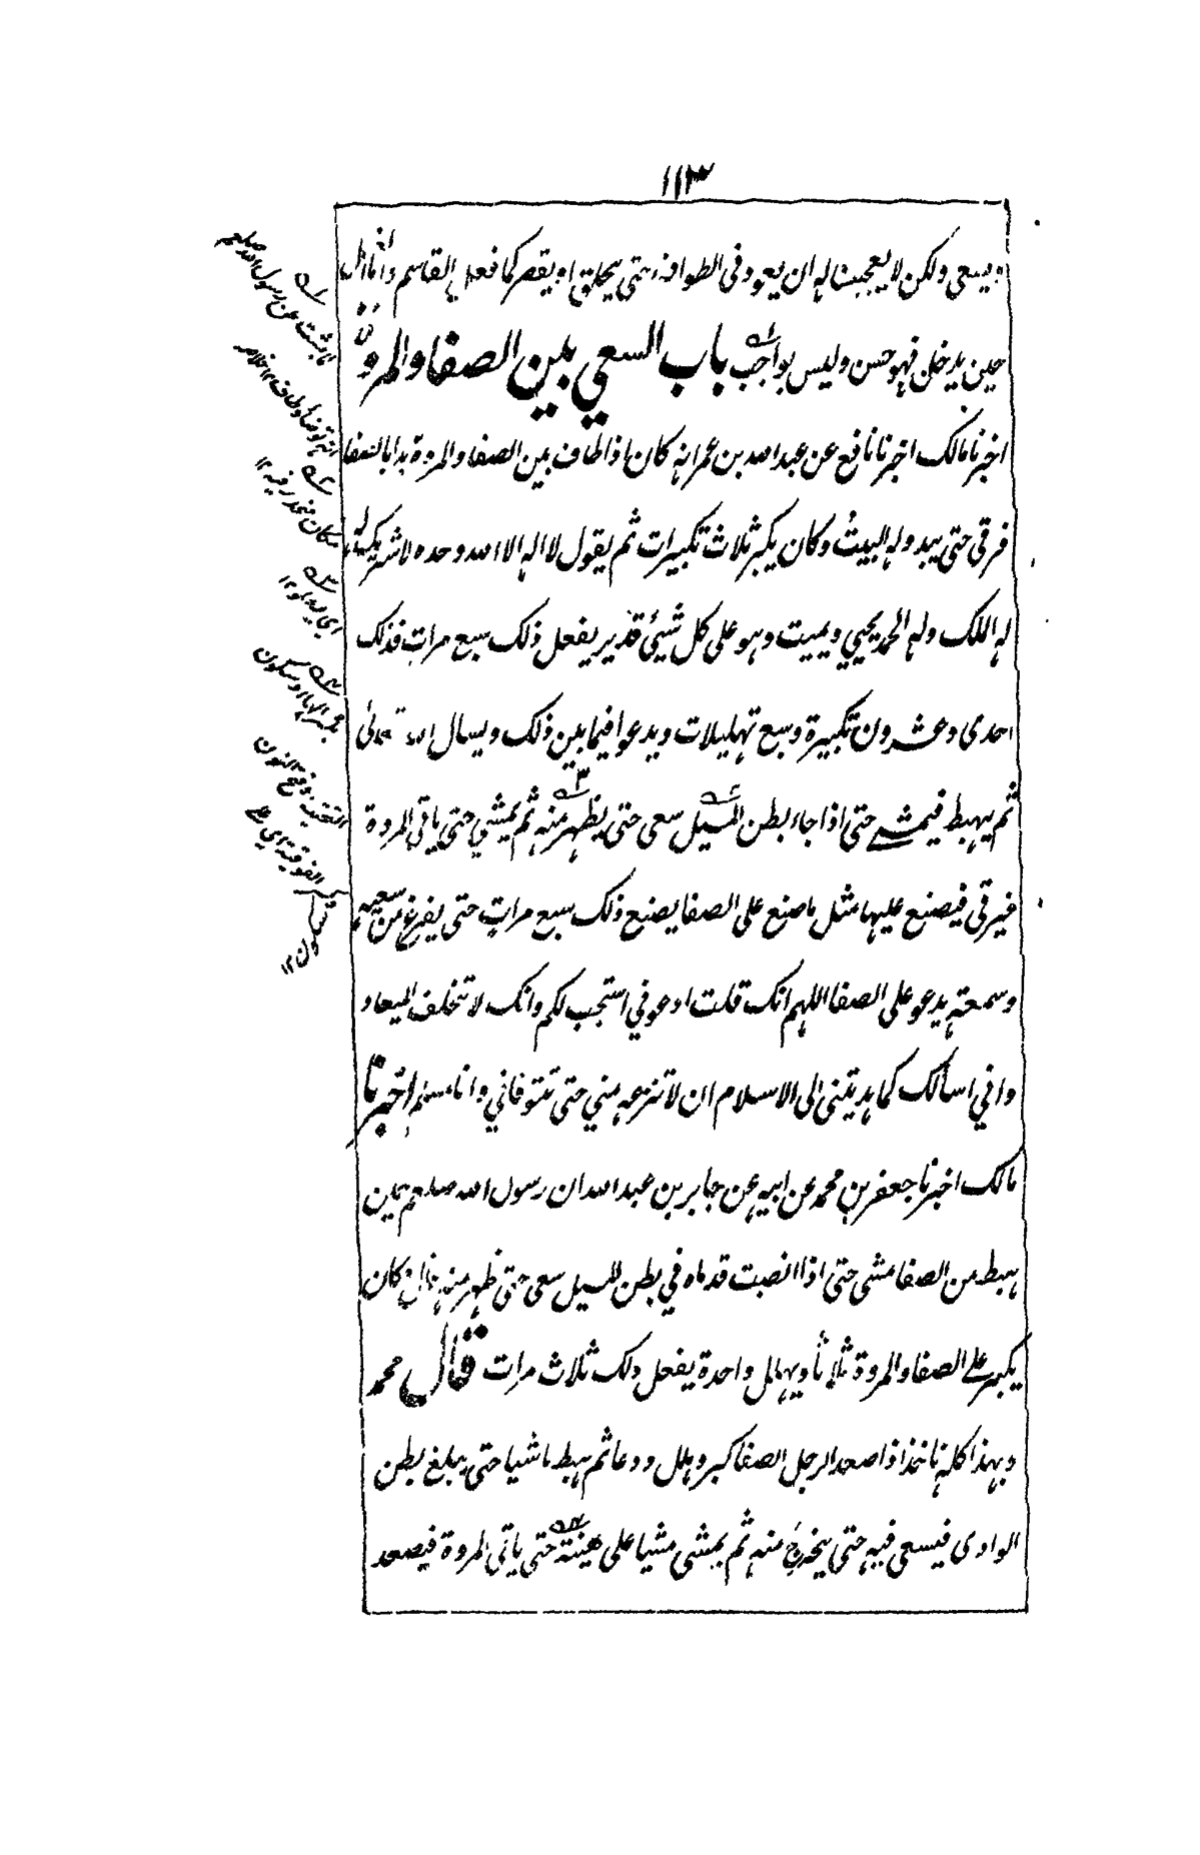 ١١٣
ويسعى ولكن لا يعجبنا له ان يعود فى الطواف حتى يحلق او يقصر كما فعل القاسم واغتسال
حين يدخل فهو حسن وليس بواجب باب السعي بين الصفا والمروة
اخبرنا مالك اخبرنا نافع عن عبد الله بن عمر انه كان اذا طاف بين الصفا والمروة بدا بالصفا
فرقى حتى يبدو له البيت وكان يكبر ثلاث تكبيرات ثم يقول لا اله الا الله وحده لا شريك له
له الملك وله الحمد يحيي ويميت وهو على كل شيئ قدير يفعل ذلك سبع مرات فذلك
احدى وعشرون تكبيرة وسبع تهليلات ويدعو فيما بين ذلك ويسال الله تعالى
ثم يهبط فيمشي حتى اذا جاء بطن المسيل سعى حتى يظهر منه ثم يمشي حتى ياتي المروة
فيرقى فيصنع عليها مثل ما صنع على الصفا يصنع ذلك سبع مرات حتى يفرغ من سعيه
وسمعته يدعو على الصفا اللهم انك قلت ادعوني استجب لكم وانك لا تخلف الميعاد
واني اسألك كما هديتنى الى الاسلام ان لا تنزعه مني حتى تتوفاني وانا مسلم اخبرنا
مالك اخبرنا جعفر بن محمد عن ابيه عن جابر بن عبد الله ان رسول الله صلعم حين
هبط من الصفا مشى حتى اذا انصبت قدماه في بطن المسيل سعى حتى ظهر منه قال وكان
يكبر على الصفا والمروة ثلاثا ويهلل واحدة يفعل ذلك ثلاث مرات قال محمد
وبهذا كله ناخذ اذا صعد الرجل الصفا كبر وهلل ودعا ثم هبط ماشيا حتى يبلغ بطن
الوادى فيسعى فيه حتى يخرج منه ثم يمشى مشيا على هينته حتى ياتي المروة فيصعد
ثابت عن رسول الله صلعم
مكان منحدر فيه ١٢
بكسر الهاء وسكون
التحتية وفتح النون